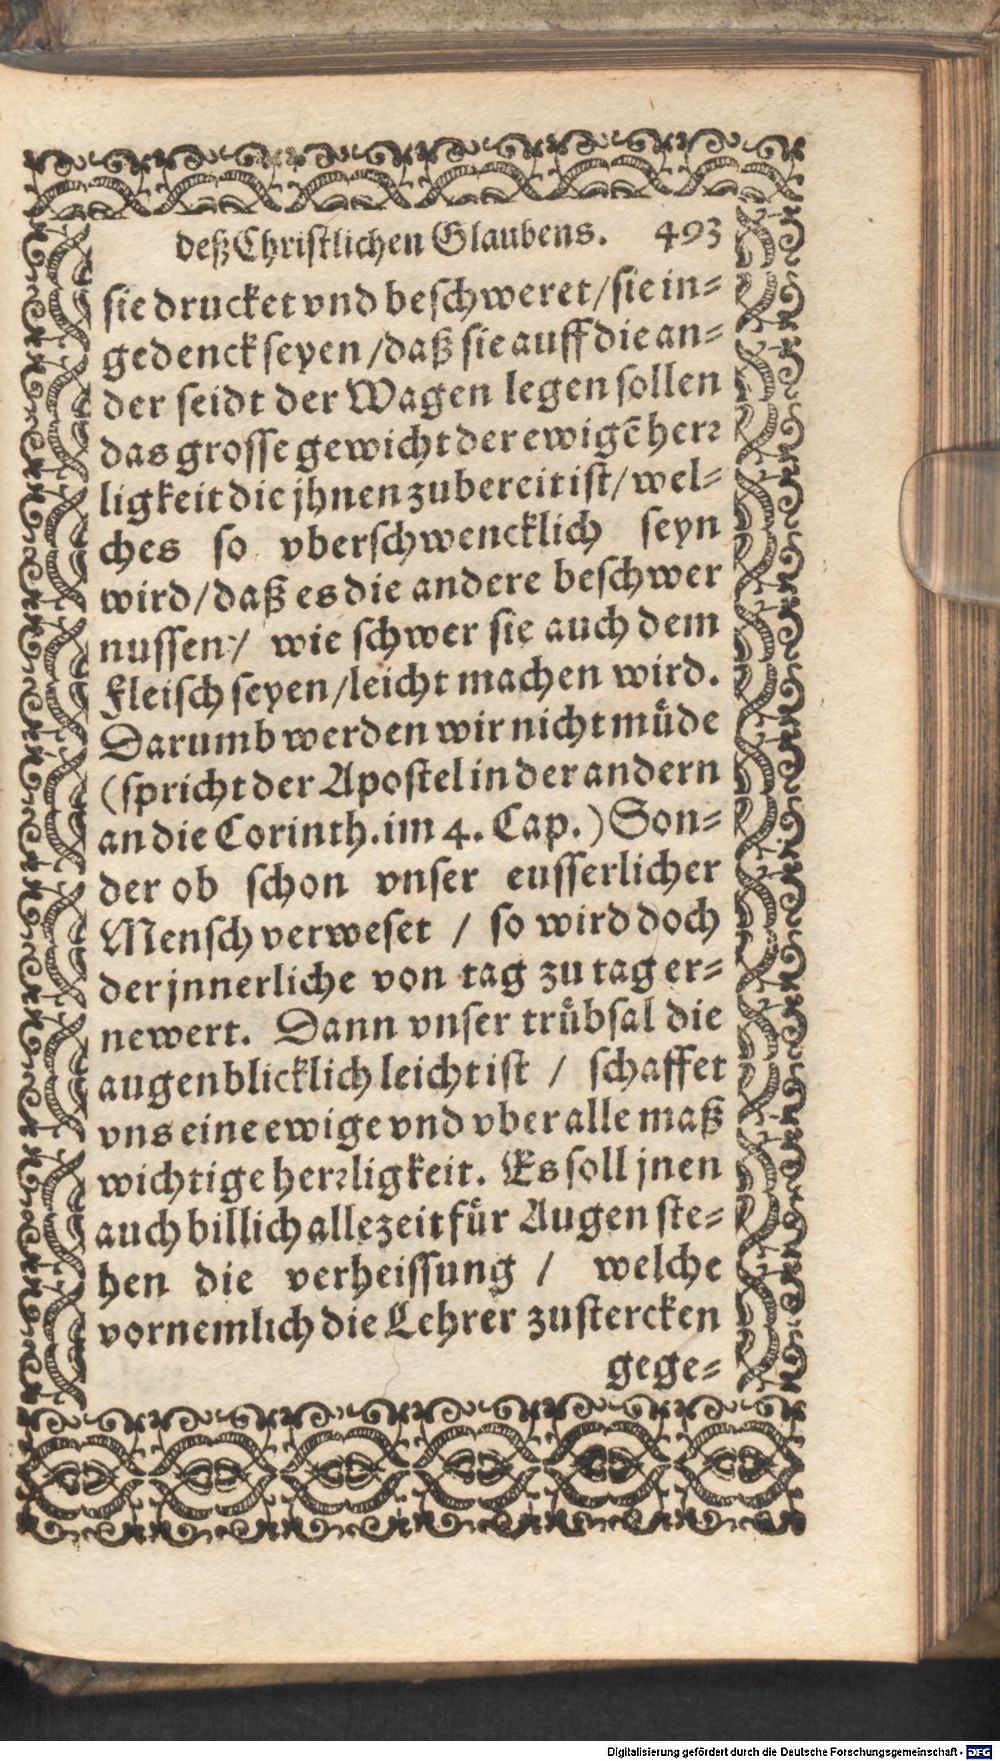 deß Christlichen Glaubens. 493
sie drucket vnd beschweret / sie in⸗
gedenck seyen / daß sie auff die an⸗
der seidt der Wagen legen sollen
das grosse gewicht der ewigẽ herꝛ
ligkeit die jhnen zubereit ist / wel⸗
ches so vberschwencklich seyn
wird / daß es die andere beschwer
nussen / wie schwer sie auch dem
Fleisch seyen / leicht machen wird.
Darumb werden wir nicht muͤde
(spricht der Apostel in der andern
an die Corinth. im 4. Cap.) Son⸗
der ob schon vnser eusserlicher
Mensch verweset / so wird doch
der jnnerliche von tag zu tag er⸗
newert. Dann vnser truͤbsal die
augenblicklich leicht ist / schaffet
vns eine ewige vnd vber alle maß
wichtige herꝛligkeit. Es soll jnen
auch billich allezeit fuͤr Augen ste⸗
hen die verheissung / welche
vornemlich die Lehrer zustercken
gege⸗
Digitalisierung gefördert durch die Deutsche Forschungsgemeinschaft - DFG